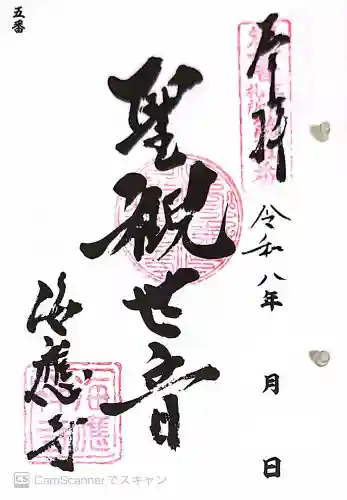 五番
奉拝
令和八年 月 日
聖観世音
海應寺
海應寺
CS CamScannerでスキャン